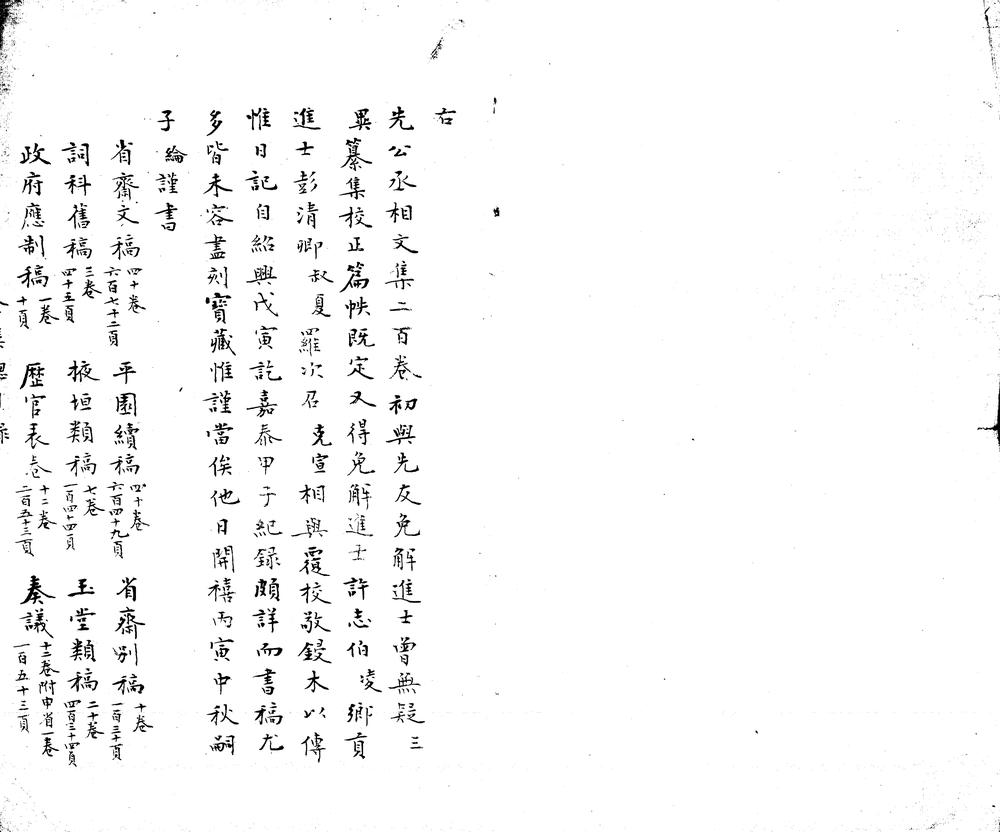 右
先公丞相文集二百卷初與先友免解進士曾無疑三
異纂集校正篇帙既定又得免解進士許志伯凌鄉貢
進士彭清卿叔夏羅次召克宣相與覆校敬鋟木以傳
惟日記自紹興戊寅訖嘉泰甲子紀録頗詳而書稿尤
多皆未容盡刻寶藏惟謹當俟他日開禧丙寅中秋嗣
子綸謹書
省齋文稿四十卷六百七十二頁 平園續稿四十卷六百四十九頁 省齋別稿十卷一百三十頁
詞科舊稿三卷四十五頁 掖垣類稿七卷一百四十四頁 玉堂類稿二十卷四百三十四頁
政府應制稿一卷十頁 歷官表卷十二卷二百五十三頁 奏議十二卷附申省一卷一百五十三頁